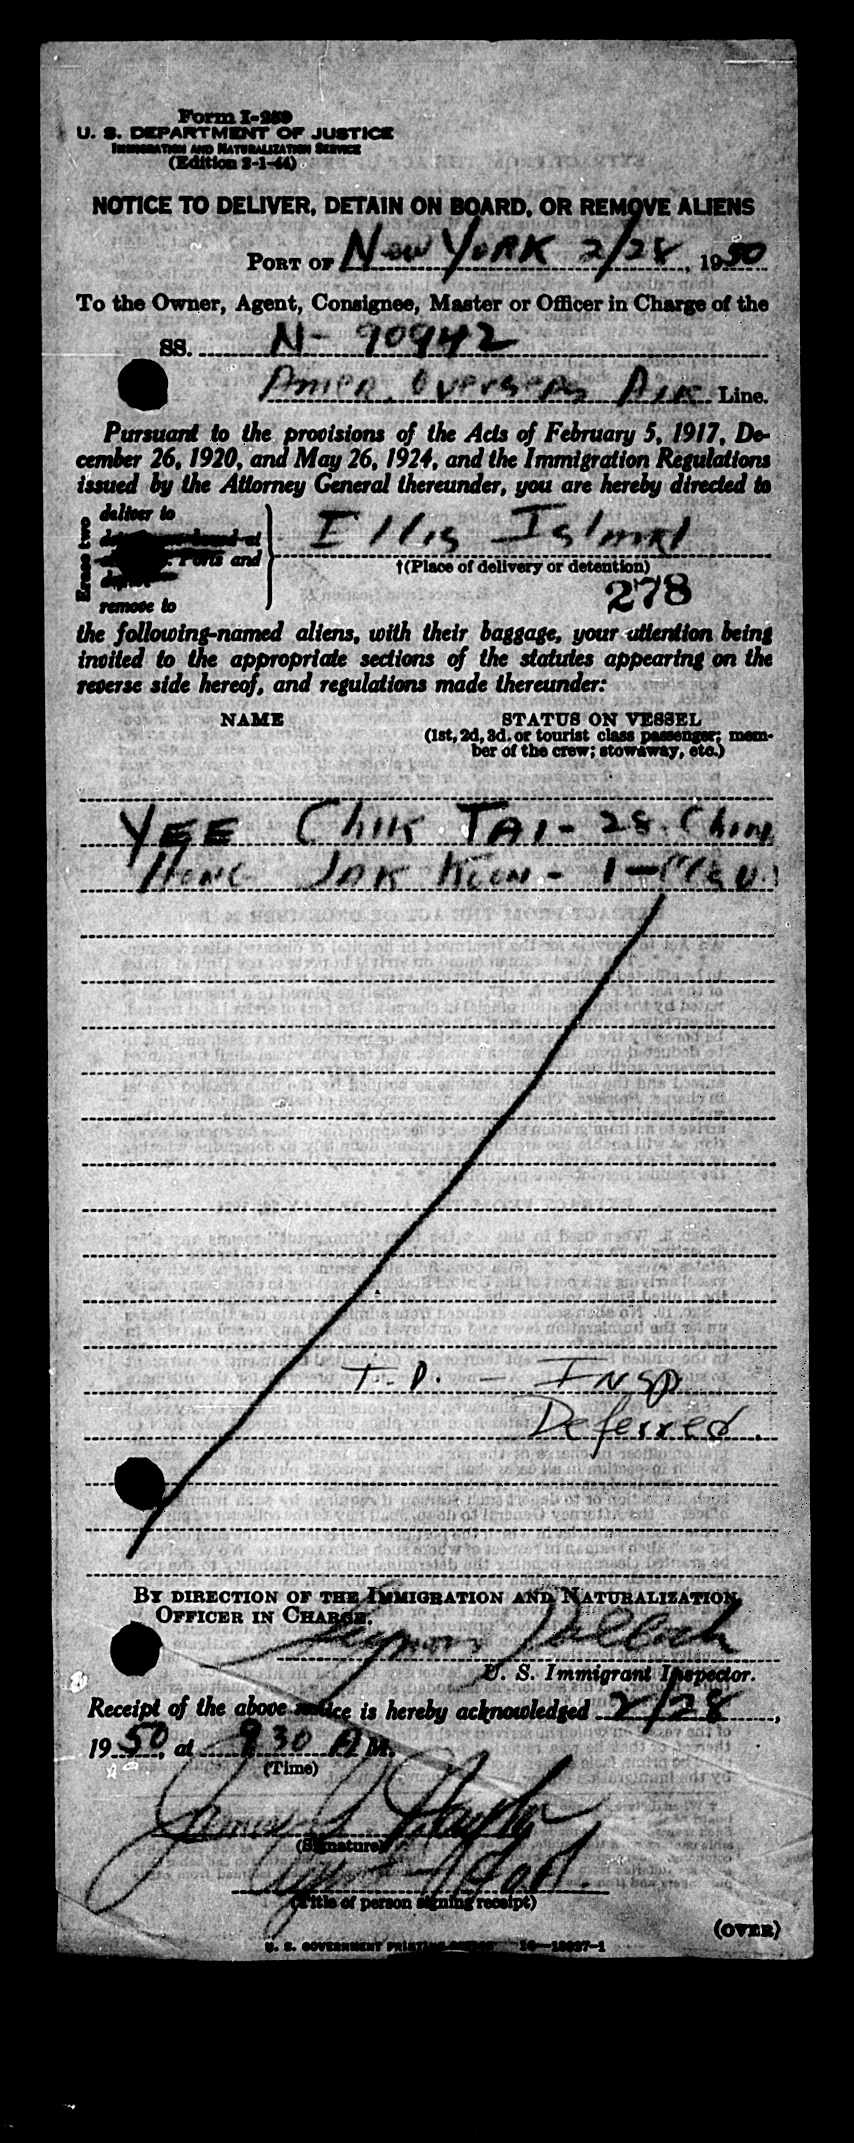 Form I-259
U. S. DEPARTMENT OF JUSTICE
IMMIGRATION AND NATURALIZATION SERVICE
(Edition 2-1-44)
NOTICE TO DELIVER, DETAIN ON BOARD, OR REMOVE ALIENS
PORT OF New York 2/28, 1950
To the Owner, Agent, Consignee, Master or Officer in Charge of the
SS. N- 90942
Amer. Overseas Air Line.
Pursuant to the provisions of the Acts of February 5, 1917, De-
cember 26, 1920, and May 26, 1924, and the Immigration Regulations
issued by the Attorney General thereunder, you are hereby directed to
Erase two
deliver to
Ports and
remove to
Ellis Island
†(Place of delivery or detention)
278
the following-named aliens, with their baggage, your attention being
invited to the appropriate sections of the statutes appearing on the
reverse side hereof, and regulations made thereunder:
NAME STATUS ON VESSEL
(1st, 2d, 3d, or tourist class passenger; mem-
ber of the crew; stowaway, etc.)
YEE Chik TAI - 28. Chin
HONG JAK KOON - 1 -
T.D. - INSP
Deferred.
BY DIRECTION OF THE IMMIGRATION AND NATURALIZATION
OFFICER IN CHARGE.
U. S. Immigrant Inspector.
Receipt of the above notice is hereby acknowledged 2/28,
1950, at 930 A M.
(Time)
James
(Signature)
(Title of person signing receipt)
(OVER)
U. S. GOVERNMENT PRINTING